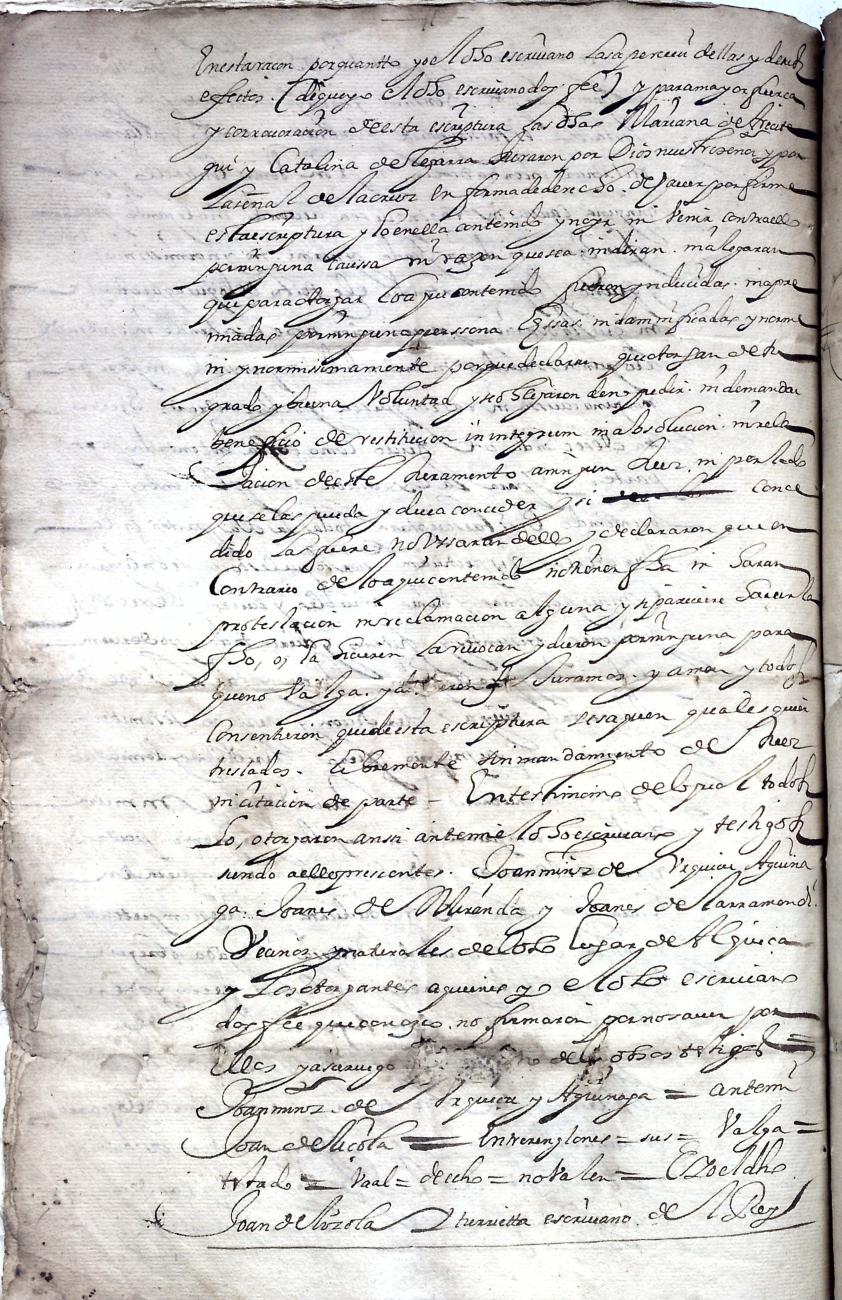 en esta racon por quantto yo el dho escriuano las aperciui dellas y de sus
effectos (de que yo el dho escriuano doy fee) y para mayor fuerca
y corroboracion de esta escriptura las dhas Mariana de
gui y Catalina de Legarra Juraron por Dios nuestro señor y por
la señal de la cruz en forma de derecho. de hauer por firme
esta escriptura y lo en ella contenido y no yr ni venir contra ello
por ninguna caussa ni razon que sea: ni diran ni alegaran
que para otorgar lo aqui contenido fueron ynducidas. ni apre
miadas por ninguna perssona lessas ni damnificadas ynorme
ni ynormisimamente porque declaran que otorgan de su
grado y buena Voluntad y se obligaron de no pedir. ni demandar
beneficio de restitucion in integrum ni absolucion ni rela
xacion de este Juramento a ningun Juez. ni perlado
que se las pueda y deua conceder y si conce
dido las fuere no vssaran dello y declararon que en
Contrario de lo aqui contenido no tienen fha ni haran
protestacion ni reclamacion alguna y si pareciere hauerla
fho, o la hicieren la reuocan y dieron por ninguna para
que no Valga. y Juramos. y amen y todos
Consentieron que de esta escriptura se saquen quales quier
treslados. libremente sin mandamiento de Juez
ni citacion de parte – En testimonio de lo qual todos
lo, otorgaron ansi ante mi el dho escriuano y testigos
siendo a ello presentes. Joan minz de Vrquicu Aguina
ga. Joanes de Miranda y Joanes de Larramendi.
Vecinos y naturales del dho lugar de Alquica
y los otorgantes a quienes yo el dho escriuano
doy fee que conozco. no firmaron por no sauer por
ellos y a su ruego de los dhos testigos =
Joan minz. de Vrquicu y Aguinaga = ante mi
Joan de = Entre renglones = sus = Valga =
testado = Vaal = decho = no Valen = E yo el dho
Joan de Yturrietta escriuano del Rey